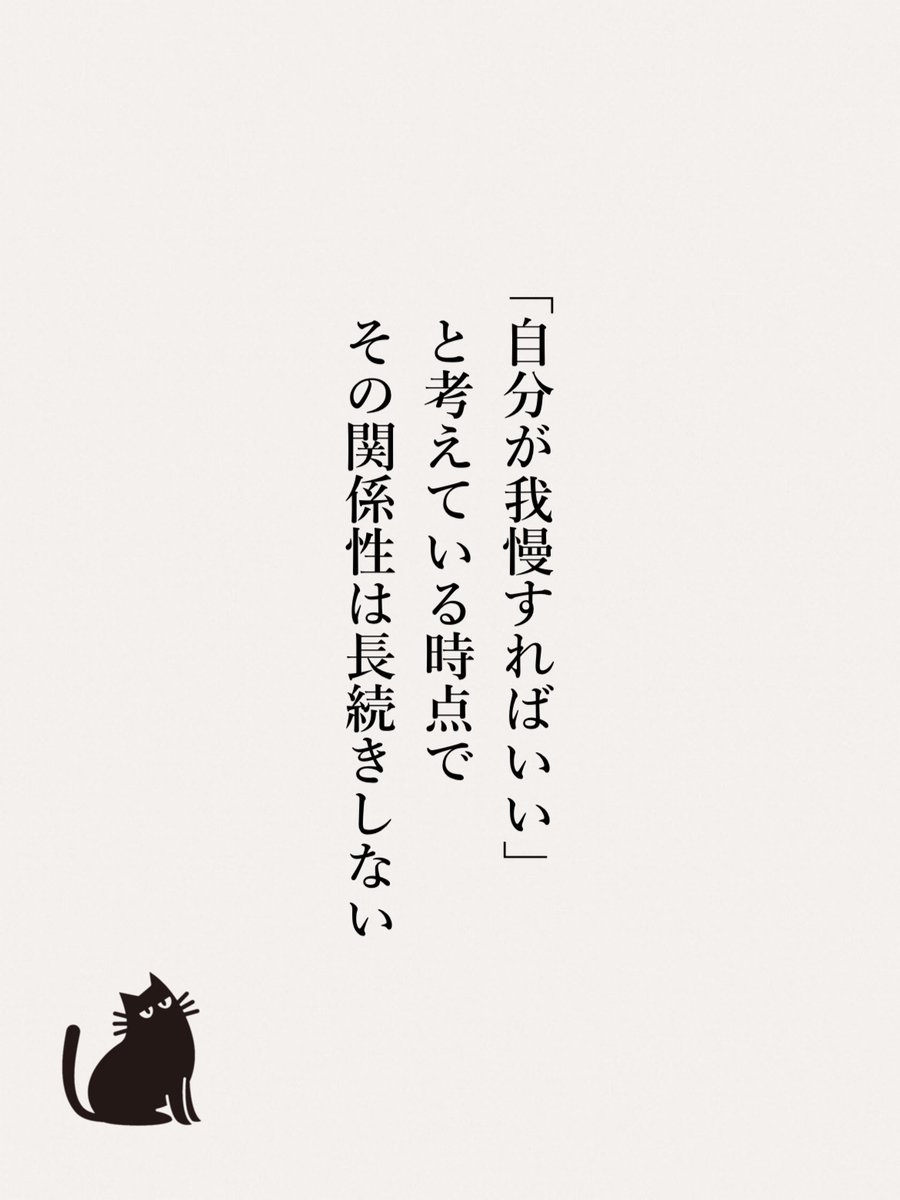 「自分が我慢すればいい」
と考えている時点で
その関係性は長続きしない